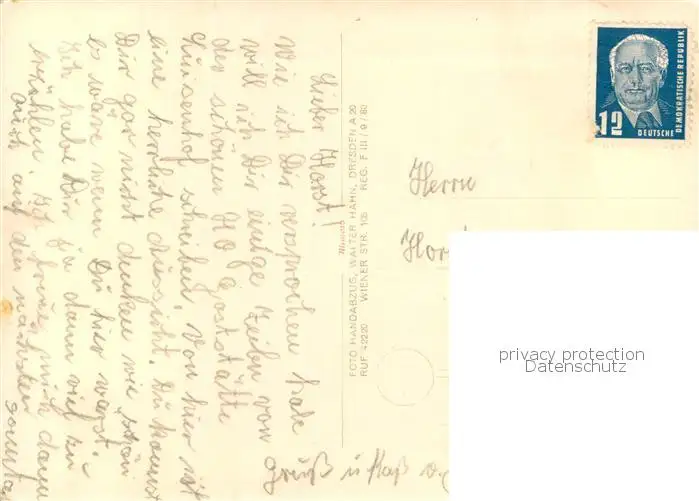 Lieber Horst!
Wie ich Dir versprochen habe
will ich Dir einige Zeilen von
der schönen HO Gaststätte
Luisenhof schreiben. Von hier ist
eine herrliche Aussicht. Du kannst
Dir gar nicht denken wie schön
es wäre wenn Du hier warst.
Ich habe Dir ja dann viel zu
erzählen. Ich freue mich dann
auch auf den nächsten
Sonnta
Gruß u
FOTO HANDABZUG, WALTER HAHN, DRESDEN A 20
RUF 42220 WIENER STR. 105 REG. F III / 9 / 60
12
DEUTSCHE
DEMOKRATISCHE REPUBLIK
Herrn
Horst
privacy protection
Datenschutz